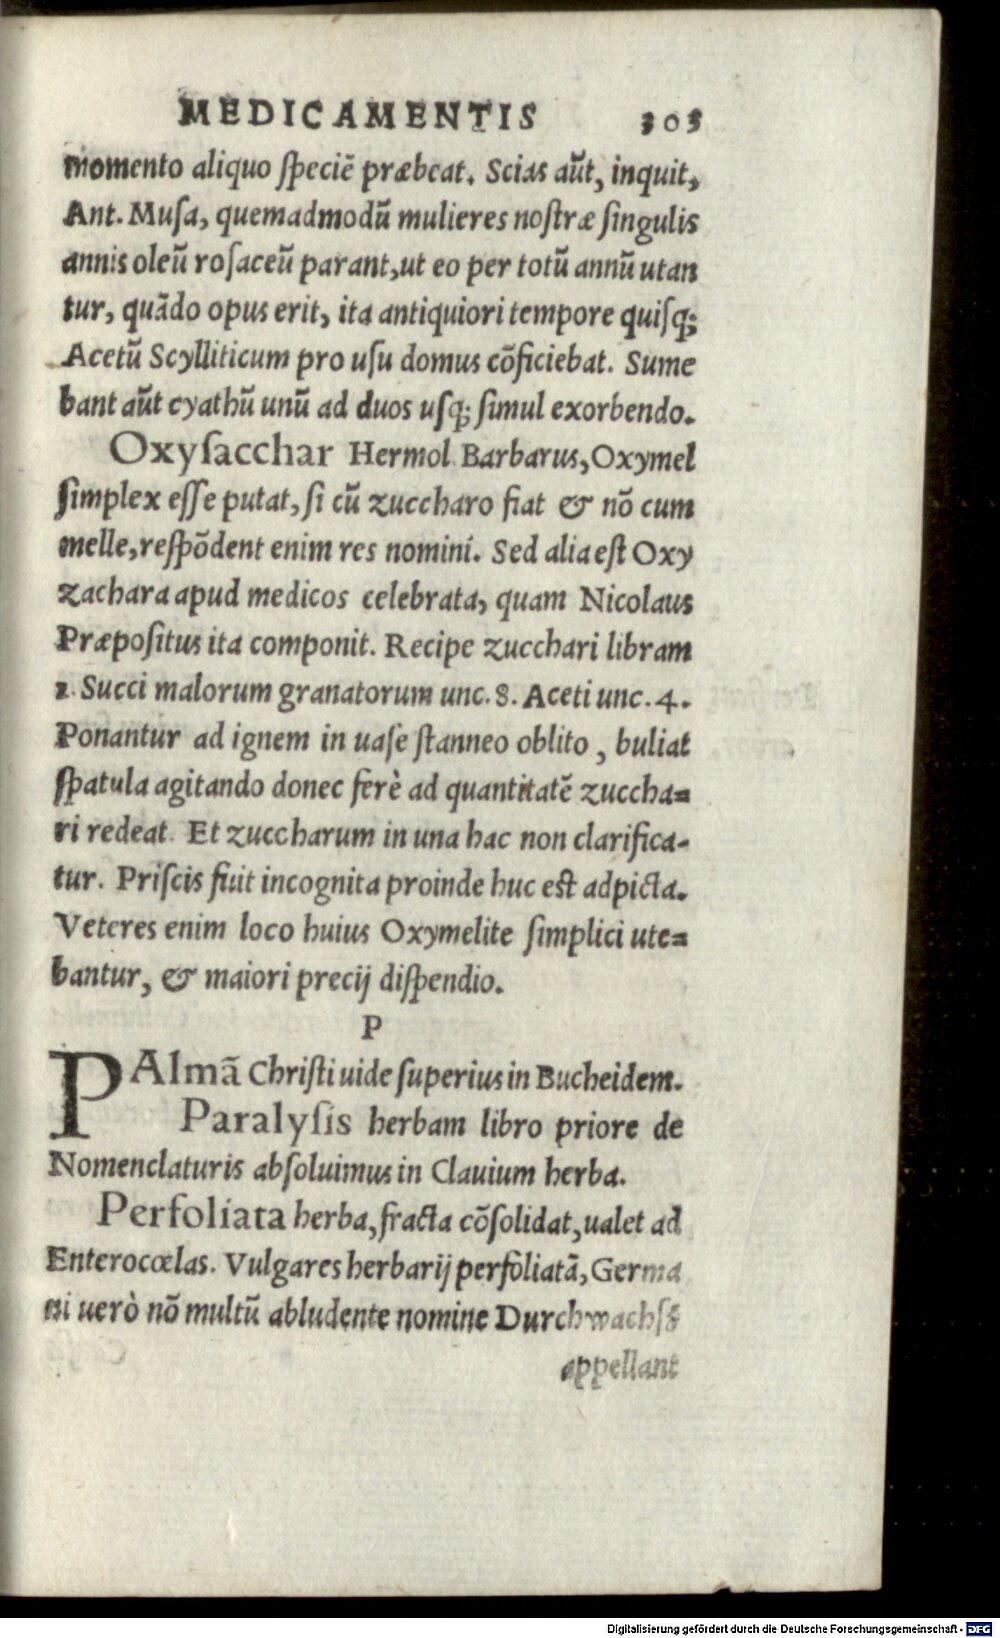 MEDICAMENTIS 305
momento aliquo ſpeciē præbeat. Scias aūt, inquit,
Ant. Muſa, quemadmodū mulieres noſtræ ſingulis
annis oleū roſaceū parant, ut eo per totū annū utan
tur, quādo opus erit, ita antiquiori tempore quiſq;
Acetū Scylliticum pro uſu domus cōficiebat. Sume
bant aūt cyathū unū ad duos uſq; ſimul exorbendo.
Oxyſacchar Hermol. Barbarus, Oxymel
ſimplex eſſe putat, ſi cū zuccharo fiat & nō cum
melle, reſpōdent enim res nomini. Sed alia eſt Oxy
zachara apud medicos celebrata, quam Nicolaus
Præpoſitus ita componit. Recipe zucchari libram
1. Succi malorum granatorum unc. 8. Aceti unc. 4.
Ponantur ad ignem in uaſe ſtanneo oblito, buliat
ſpatula agitando donec ferè ad quantitatē zuccha=
ri redeat. Et zuccharum in una hac non clarifica-
tur. Priſcis fuit incognita proinde huc est adpicta.
Veteres enim loco huius Oxymelite ſimplici ute=
bantur, & maiori precij diſpendio.
P
PAlmā Chriſti uide ſuperius in Bucheidem.
Paralyſis herbam libro priore de
Nomenclaturis abſoluimus in Clauium herba.
Perfoliata herba, fracta cōſolidat, ualet ad
Enterocœlas. Vulgares herbarij perfoliatā, Germa
ni uerò nō multū abludente nomine Durchwachſz
appellant
Digitalisierung gefördert durch die Deutsche Forschungsgemeinschaft - DFG